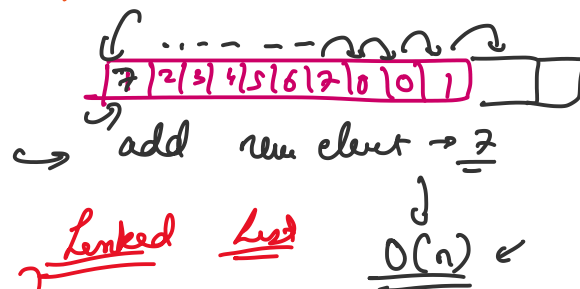 7 | 2 | 3 | 4 | 5 | 6 | 7 | 0 | 0 | 1
add new elemet → 7
Linked List
O(n)